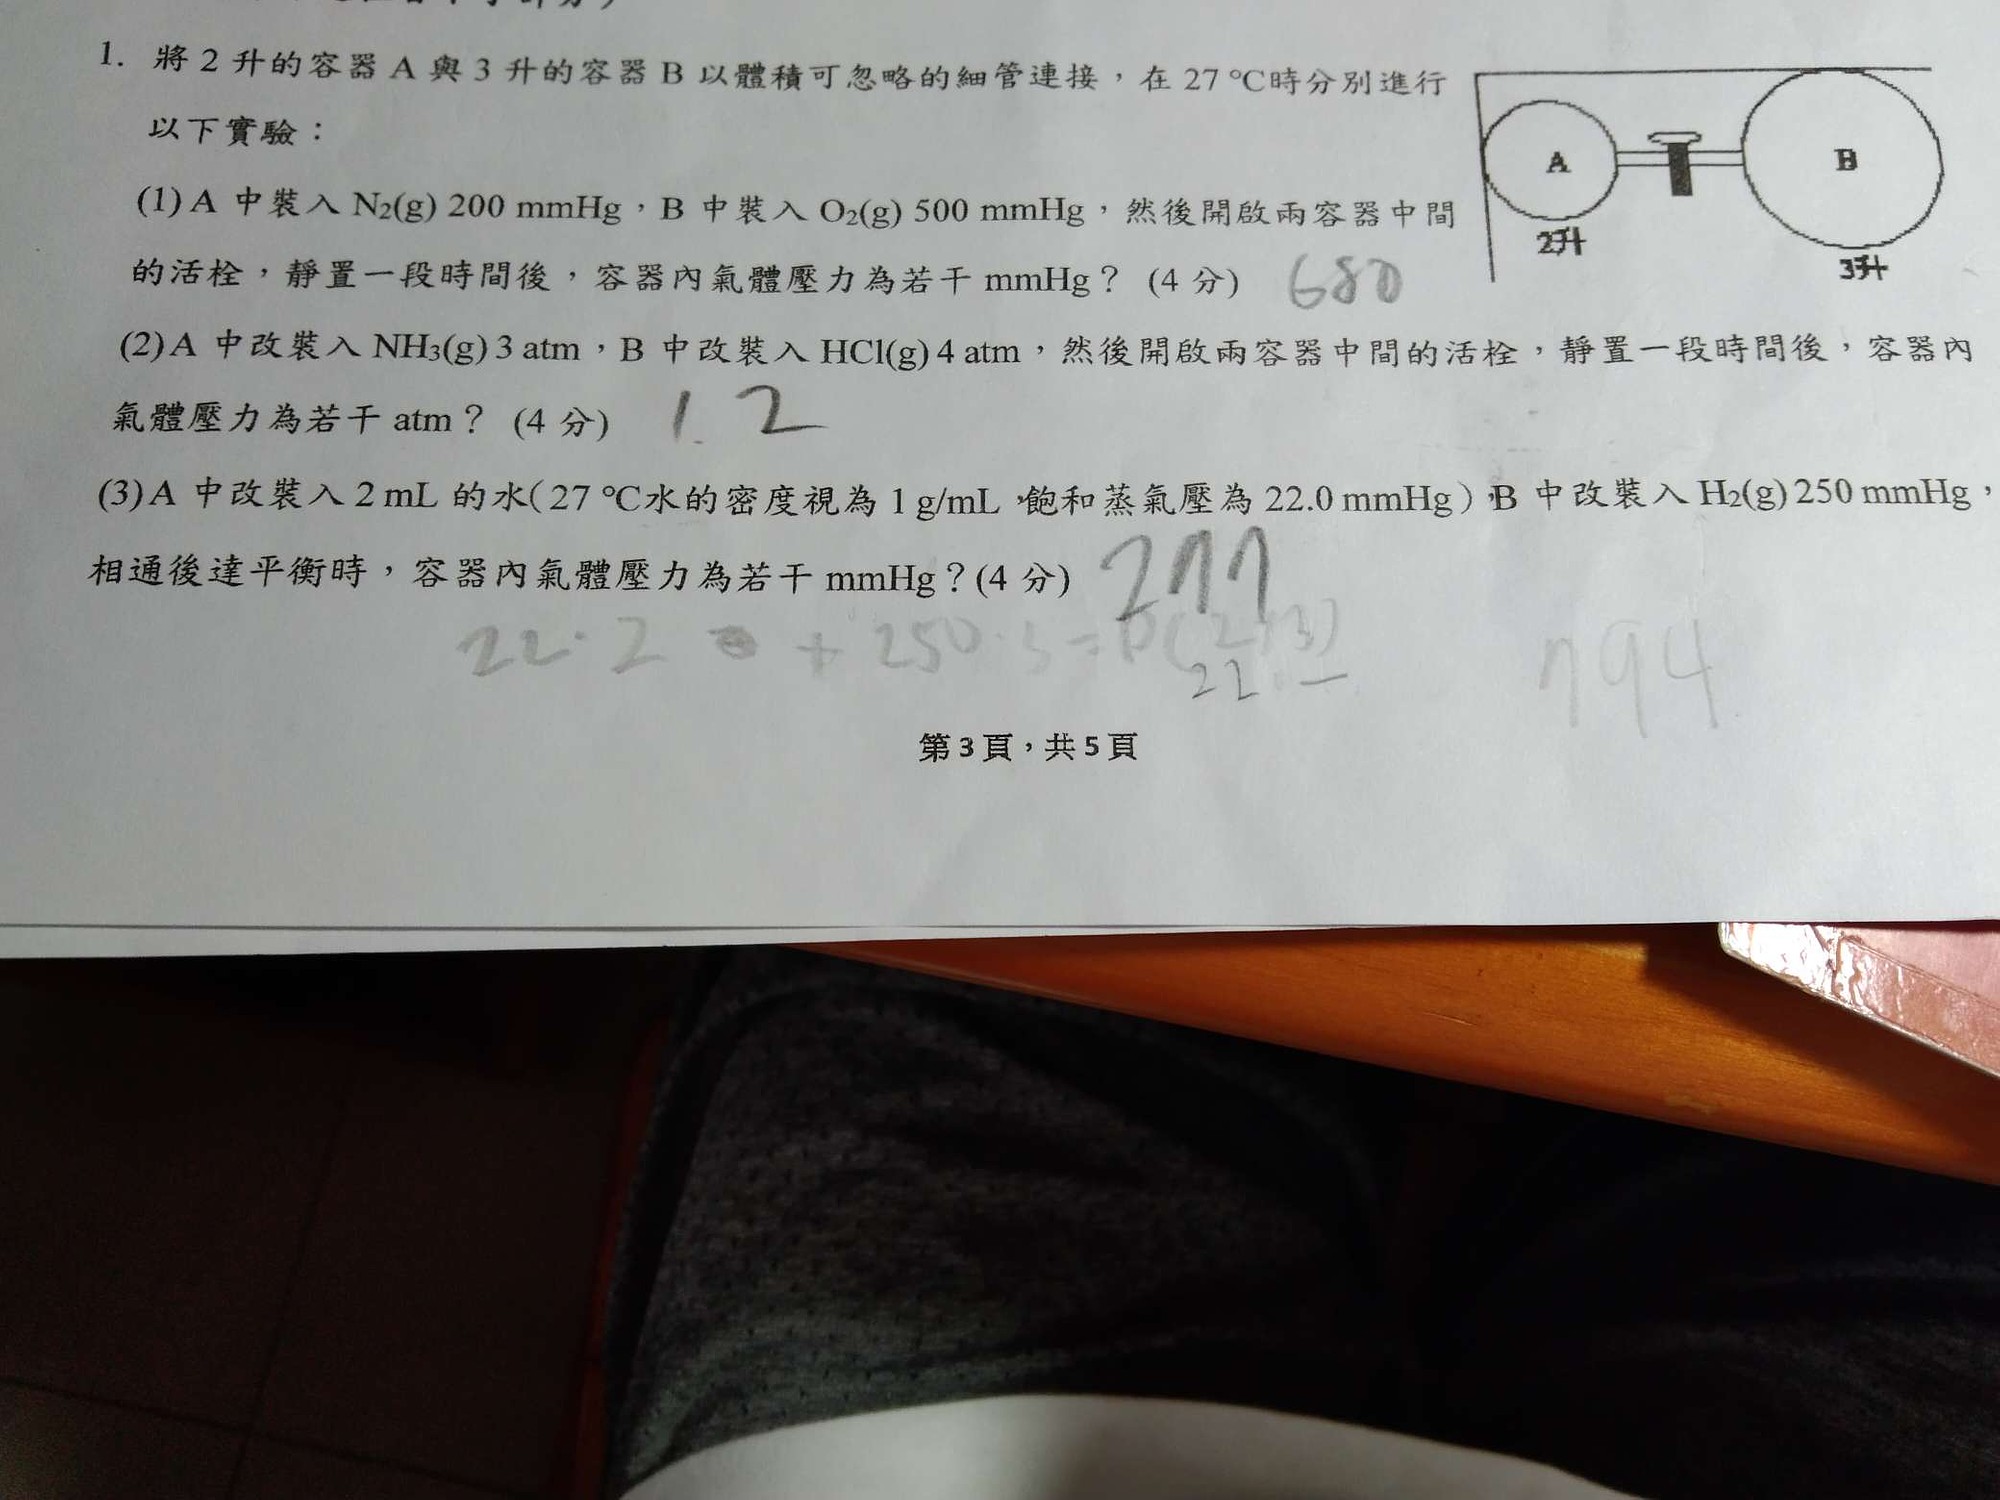 1. 將 2 升的容器 A 與 3 升的容器 B 以體積可忽略的細管連接，在 27 ℃時分別進行
以下實驗：
(1) A 中裝入 N2(g) 200 mmHg，B 中裝入 O2(g) 500 mmHg，然後開啟兩容器中間
的活栓，靜置一段時間後，容器內氣體壓力為若干 mmHg？ (4 分) 680
A
B
2升
3升
(2) A 中改裝入 NH3(g) 3 atm，B 中改裝入 HCl(g) 4 atm，然後開啟兩容器中間的活栓，靜置一段時間後，容器內
氣體壓力為若干 atm？ (4 分) 1.2
(3) A 中改裝入 2 mL 的水( 27 ℃水的密度視為 1 g/mL，飽和蒸氣壓為 22.0 mmHg )，B 中改裝入 H2(g) 250 mmHg，
相通後達平衡時，容器內氣體壓力為若干 mmHg？(4 分) 277
22·2 + 250·3 = P(2+3)
22
794
第 3 頁，共 5 頁